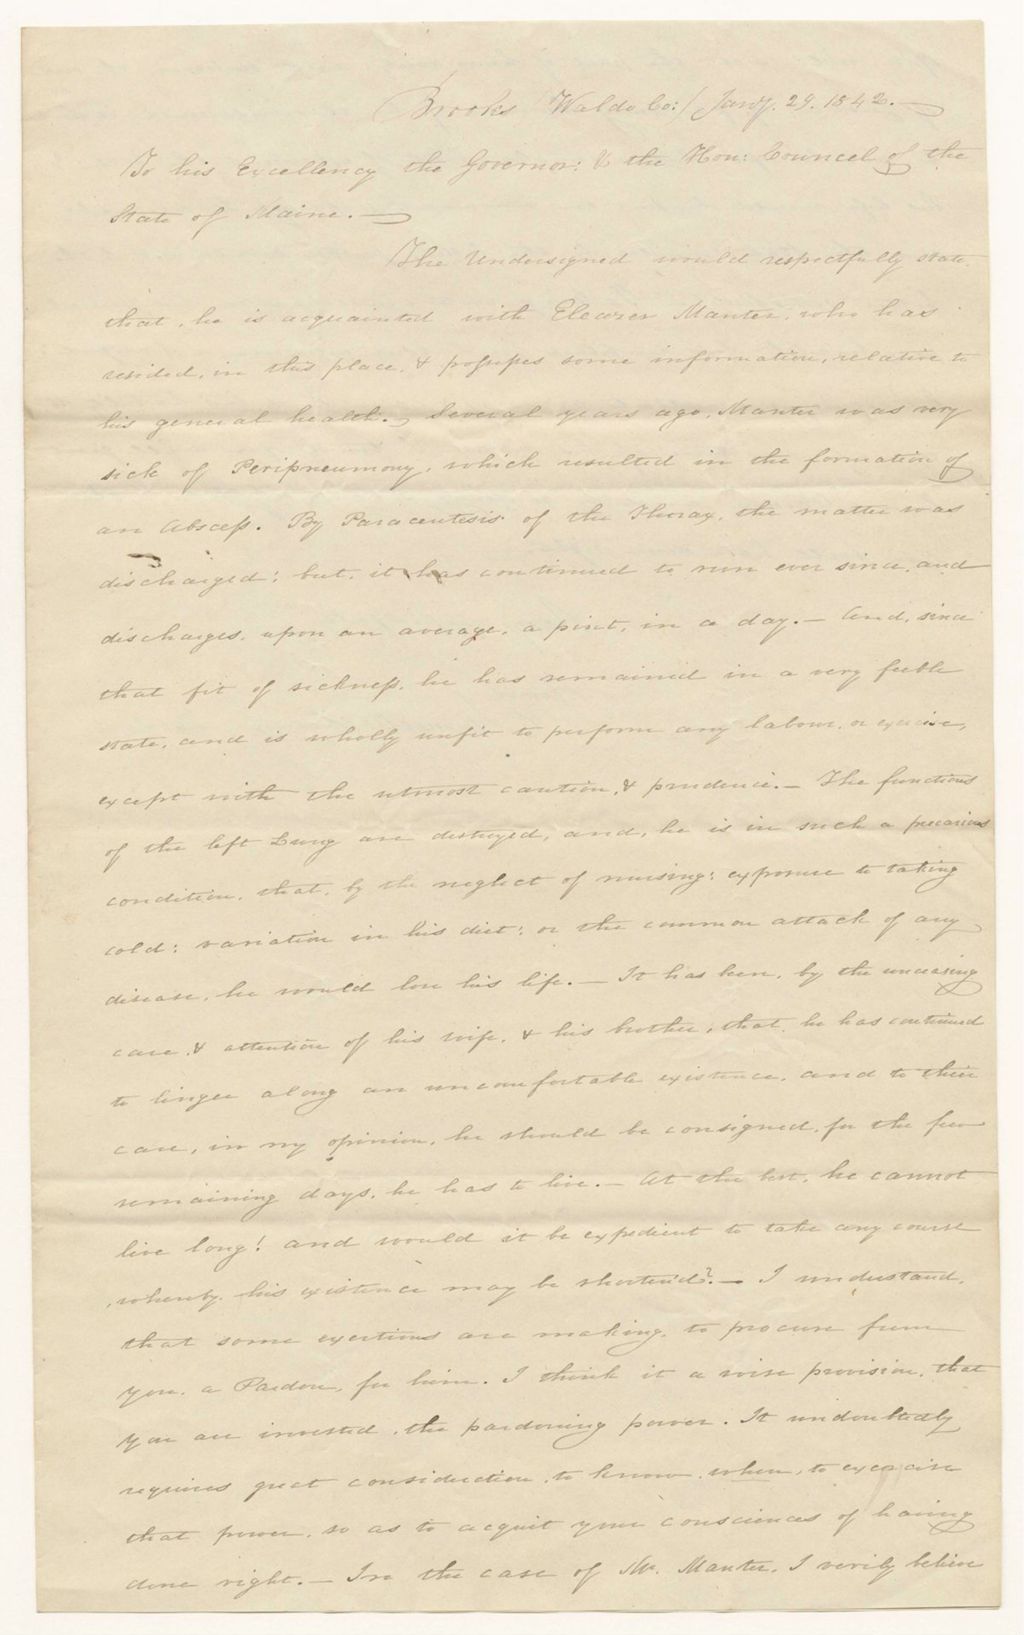 Brooks (Waldo Co:) Jany. 29. 1842.—
To his Excellency the Governor: & the Hon: Councel of the
State of Maine.—
The Undersigned would respectfully state
that, he is acquainted with Eleazer Manter, who has
resided, in this place, & possesses some information, relative to
his general health. Several years ago, Manter was very
sick of Peripneumony, which resulted in the formation of
an Abscess. By Paracentesis of the Thorax, the matter was
discharged; but, it has continued to run ever since, and
discharges, upon an average, a pint, in a day.— And, since
that fit of sickness, he has remained in a very feeble
state, and is wholly unfit to perform any labour, or exercise,
except with the utmost caution, & prudence.— The functions
of the left Lung are destroyed, and, he is in such a precarious
condition, that, by the neglect of nursing; exposure to taking
cold; variation in his diet; or the common attack of any
disease, he would lose his life.— It has been, by the unceasing
care, & attention of his wife, & his brother, that, he has continued
to linger along an uncomfortable existence, and to their
care, in my opinion, he should be consigned, for the few
remaining days, he has to live.— At the best, he cannot
live long! and would it be expedient to take any course
whereby, his existence may be shortened?.— I understand,
that some exertions are making, to procure from
you, a Pardon, for him. I think it a wise provision, that
you are invested, the pardoning power. It undoubtedly
requires great consideration, to know, when, to exercise
that power, so as to acquit your consciences of having
done right.— In the case of Mr. Manter, I verily believe